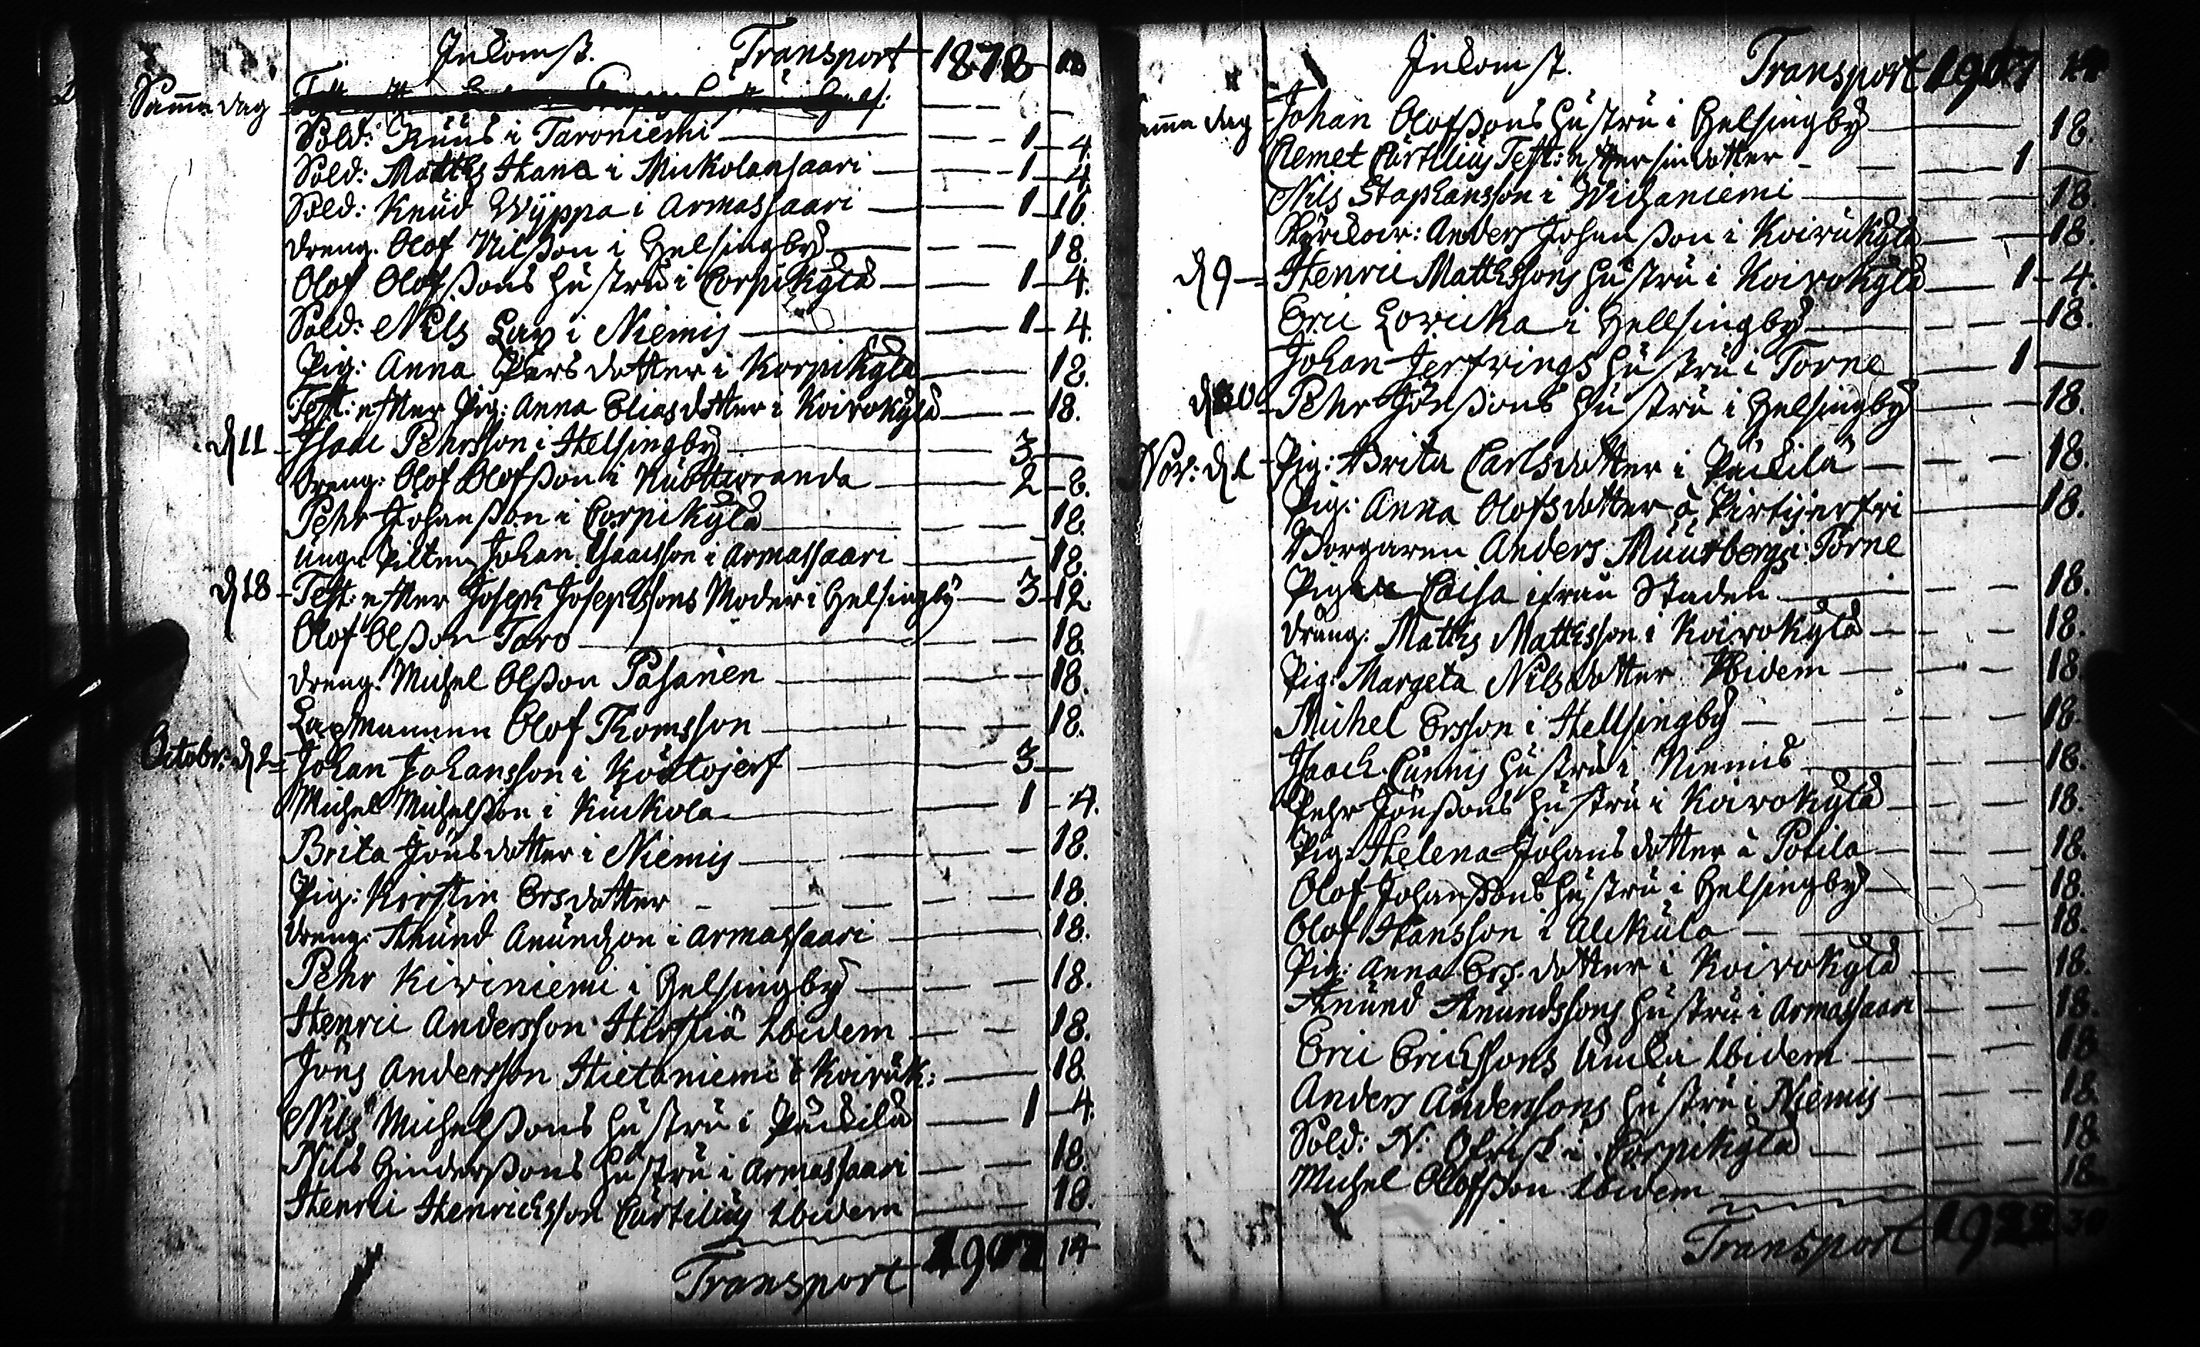 Inkomst. Transport 1878 10
Samma dag
Sold: Kuus i Taroniemi 1 4.
Sold: Matths Hana i Mickolansaari 1 4.
Sold: Knud Wyppa i Armassaari 1 16.
dreng. Olof Nilsson i Helsingby 18.
Olof Olofssons hustru i Corpikylä 1 4.
Sold: Nils Lax i Niemis 1 4.
Pig: Anna Persdotter i Korpikylä 18.
Test: efter Pig: Anna Eliasdotter i Koivokylä 18.
d 11 Isaac Pehrsson i Helsingby 3
dreng: Olof Olofsson i 2 8.
Pehr Johansson i Corpikylä 18.
unge Pilten Johan Isaacsson i Armassaari 18.
d 18 Test: efter Joseph Josephssons Moder i Helsingby 3 12.
Olof Olsson Taro 18.
dreng: Michel Olsson Pasanen 18.
Lapmannen Olof Thomsson 18.
Octobr: d 2 Johan Johansson i 3
Michel Michelsson i Kuckola 1 4.
Brita Jönsdotter i Niemis 18.
Pig: Kirstin Ersdotter 18.
dreng: Anund Anundson i Armassaari 18.
Pehr Kiviniemi i Helsingby 18.
Henric Andersson Ibidem 18.
Jöns Andersson Hietaniemi i Koivuk: 18.
Nils Michelssons hustru i Päckilä 1 4.
Nils hustru i Armassaari 18.
Henric Henricksson Curtilius Ibidem 18.
Transport 14
Inkomst. Transport
Samma dag Johan Olofssons hustru i Helsingby 18.
Clemet Curtilius Test: efter sin dotter 1
Nils Staphansson i Wichaniemi 18
Kyrckovr: Anders Johansson i Koivukylä 18.
d 9 Henric Matthssons hustru i Koivokylä 1 4.
Eric Lovicka i Hellsingby 18.
Johan Jerfvings hustru i Torne 1
Pehr Jönssons hustru i Helsingby 18.
Nov: d 1 Pig: Brita Carlsdotter i Päckilä 18.
Pig: Anna Olofsdotter à Pirtijerfvi 18.
Borgaren Anders i Torne
Pigan Caisa ifrån Staden 18.
dreng: Matths Matthsson i Koivokylä 18.
Pig: Margeta Nilsdotter Ibidem 18
Michel Ersson i Hellsingby 18
Isach Cunnis hustru i Niemis 18.
Pehr Jönssons hustru i Koivokylä 18.
Pig: Helena Johansdotter à Potila 18.
Olof Johanssons hustru i Helsingby 18.
Olof Hansson i Alckula 18.
Pig: Anna Ers dotter i Koivokylä 18.
Anund Anundssons hustru i Armassaari 18.
Eric Ericksons Encka Ibidem 18
Anders Anderssons hustru i Niemis 18.
Sold: N: Ofrisk i Corpikylä 18
Michel Olofsson Ibidem 18.
Transport